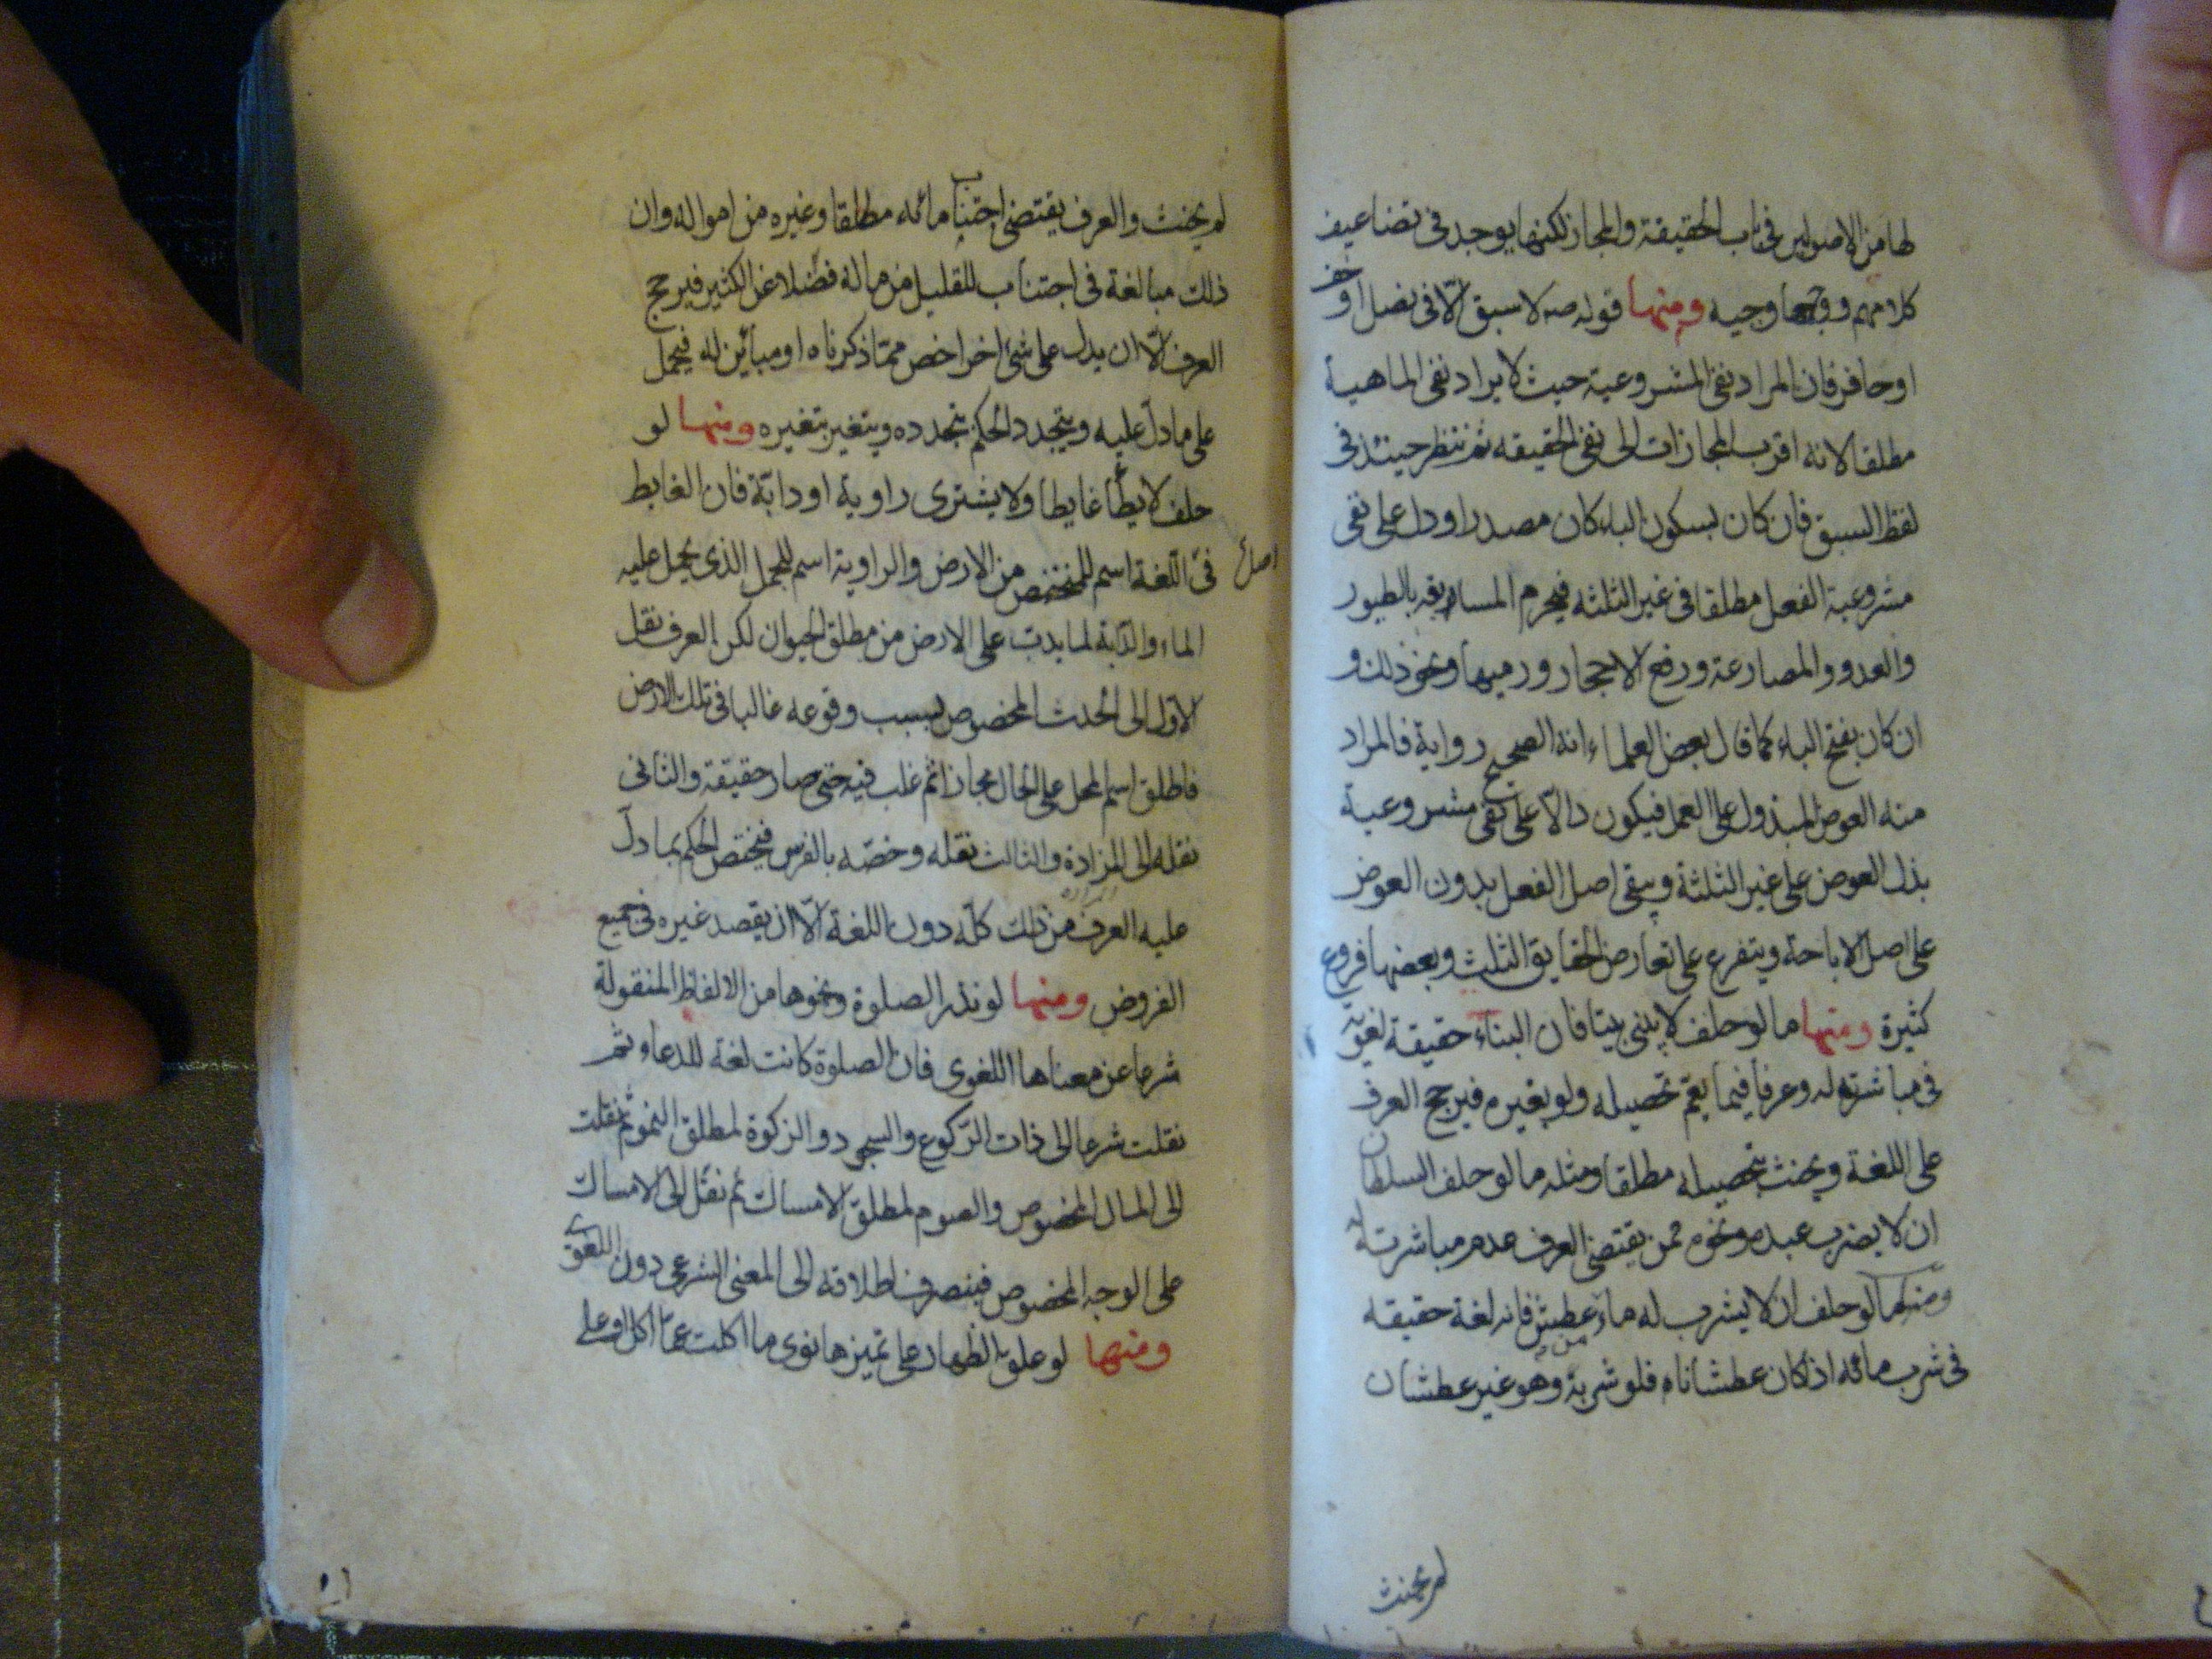 لها من الاصوليين في باب الحقيقة والمجاز لكنها يوجد في تضاعيف
كلامهم ووقعها وجيه ومنها قوله صه لا سبق الّا في نصل او خف
او حافر فان المراد نفي المشروعية حيث لا يراد نفي الماهية
مطلقا لانه اقرب المجازات الى نفي الحقيقه ثم ننظر حينئذ في
لفظ السبق فان كان بسكون الباء كان مصدرا ودل على نفي
مشروعية الفعل مطلقا في غير الثلثه فيحرم المسابقه بالطيور
والعدو والمصارعة ورفع الاحجار ورميها ونحو ذلك و
ان كان بفتح الباء كما قال بعض العلماء انه الصحيح رواية فالمراد
منه العوض المبذول على العمل فيكون دالّا على نفي مشروعية
بذل العوض على غير الثلثة ويبقى اصل الفعل بدون العوض
على اصل الاباحة ويتفرع على تعارض الحقايق الثلث وبعضها فروع
كثيرة ومنها ما لو حلف لا يبنى بيتا فان البناء حقيقة لغوية
في مباشرته له وعرفا فيما يعمّ تحصيله ولو بغيره فيرجح العرف
على اللغة ويحنث بتحصيله مطلقا ومثله ما لو حلف السلطان
ان لا يضرب عبده ونحوه ممن يقتضى العرف عدم مباشرته له
ومنها ما لو حلف ان لا يشرب له ماء من عطش فانه لغة حقيقه
في شرب مائه اذا كان عطشانا فلو شربه وهو غير عطشان
لم يحنث
لم يحنث والعرف يقتضى اجتناب مائه مطلقا وغيره من امواله وان
ذلك مبالغة في اجتناب للقليل من ماله فضلا عن الكثير فيرجح
العرف الّا ان يدل على شئ اخر اخص ممّا ذكرناه او مبائن له فيحمل
على ما دلّ عليه ويتجدد الحكم بتجدده ويتغير بتغيره ومنها لو
حلف لا يطأ غايطا ولا يشترى راوية او دابّة فان الغايط
في اصل اللّغة اسم للمنخفض من الارض والراوية اسم للجمل الذى يحمل عليه
الماء والدّابة لما يدبّ على الارض من مطلق الحيوان لكن العرف نقل
الاوّل الى الحدث المخصوص بسبب وقوعه غالبا في تلك الارض
فاطلق اسم المحل على الحال مجازا ثم غلب فيه حتى صار حقيقة والثانى
نقله الى المزادة والثالث نقله وخصّه بالفرس فيختص الحكم بما دلّ
عليه العرف من ذلك كلّه دون اللغة الّا ان يقصد غيره في جميع
الفروض ومنها لو نذر الصلوة ونحوها من الالفاظ المنقولة
شرعا عن معناها اللغوى فان الصلوة كانت لغة للدعاء ثم
نقلت شرعا الى ذات الرّكوع والسجود والزكوة لمطلق النمو ثم نقلت
الى المال المخصوص والصوم لمطلق الامساك ثم نقل الى الامساك
على الوجه المخصوص فينصرف اطلاقه الى المعنى الشرعى دون اللغوى
ومنها لو علق الظهار على تميزها نوى ما اكلت عمّا اكل وعلى